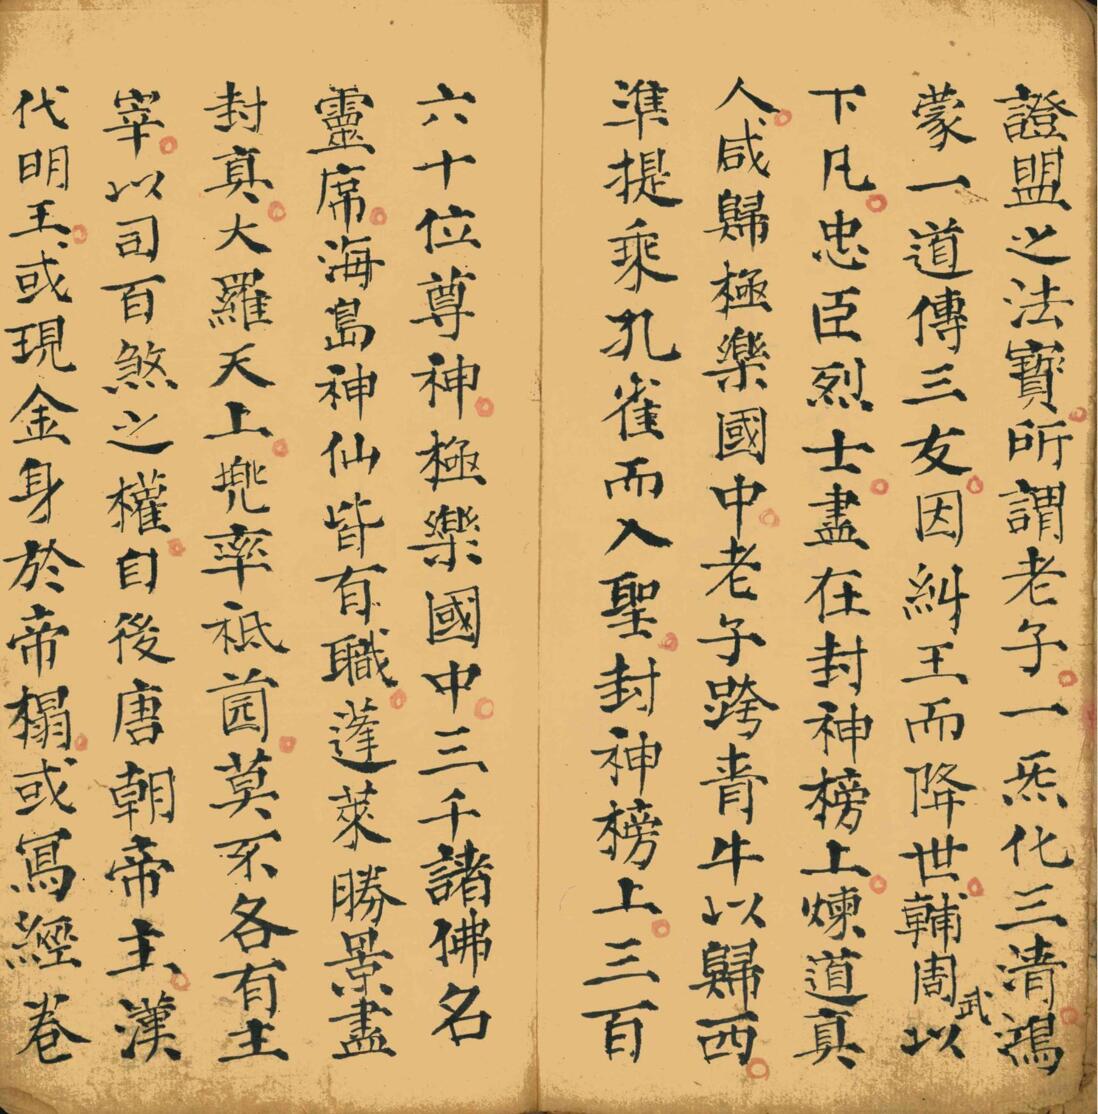 證盟之法寶所謂老子一炁化三清鴻
蒙一道傳三友因糾王而降世輔周武以
下凡忠臣烈士盡在封神榜上煉道真
人咸歸極樂國中老子跨青牛以歸西
準提乘孔雀而入聖封神榜上三百
六十位尊神極樂國中三千諸佛名
靈席海島神仙皆有職蓬萊勝景盡
封真大羅天上兠率祗园莫不各有主
宰以司百煞之權自後唐朝帝主漢
代明王或現金身於帝榻或寫經卷